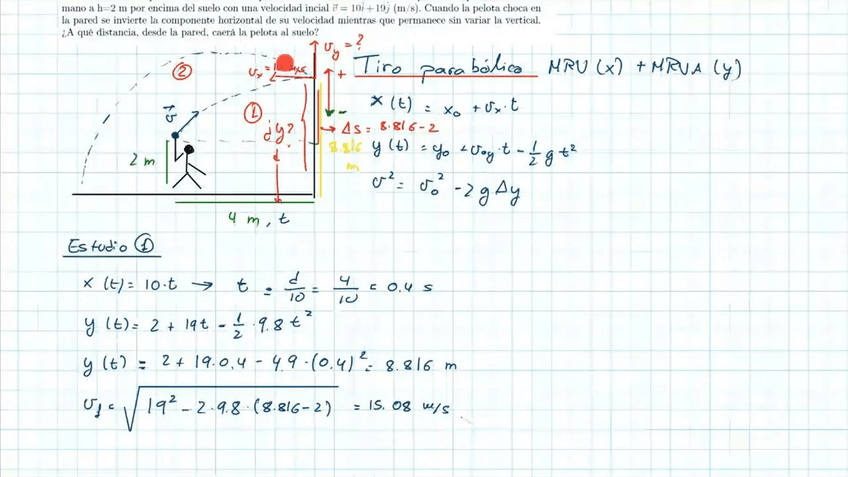 mano a h=2 m por encima del suelo con una velocidad incial v⃗ = 10i⃗ + 19j⃗ (m/s). Cuando la pelota choca en
la pared se invierte la componente horizontal de su velocidad mientras que permanece sin variar la vertical.
¿A qué distancia, desde la pared, caerá la pelota al suelo?
v_y = ?
Tiro parabólico MRU (x) + MRUA (y)
②
+
x(t) = x₀ + v_x · t
v⃗
①
-
Δs = 8.816-2
¿y?
8.816
m
y(t) = y₀ + v₀y · t - 1/2 g t²
2 m
v² = v₀² - 2 g Δy
4 m, t
Estudio ①
x (t) = 10·t → t = d/10 = 4/10 = 0.4 s
y (t) = 2 + 19t - 1/2 · 9.8 t²
y (t) = 2 + 19·0.4 - 4.9 · (0.4)² = 8.816 m
v_f = √(19² - 2·9.8 · (8.816-2)) = 15.08 m/s